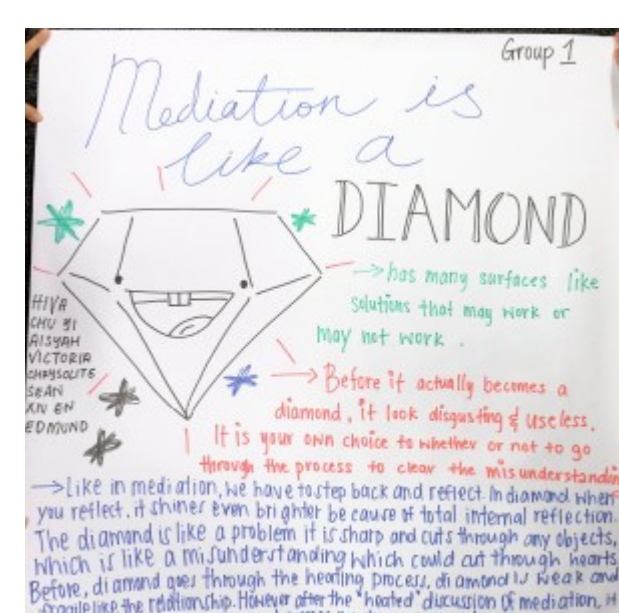 Group 1
Mediation is
like a
DIAMOND
→ has many surfaces like
solutions that may work or
may not work.
HIVA
CHU YI
AISYAH
VICTORIA
CHRYSOLITE
SEAN
XIU EN
EDMUND
→ Before it actually becomes a
diamond, it look disgusting & useless.
It is your own choice to whether or not to go
through the process to clear the misunderstandin
→ Like in mediation, we have to step back and reflect. In diamond when
you reflect, it shines even brighter be cause of total internal reflection.
The diamond is like a problem it is sharp and cuts through any objects,
which is like a misunderstanding which could cut through hearts
Before, diamond goes through the heating process, diamond is weak and
fragile like the relationship. However after the "heated" discussion of mediation, it